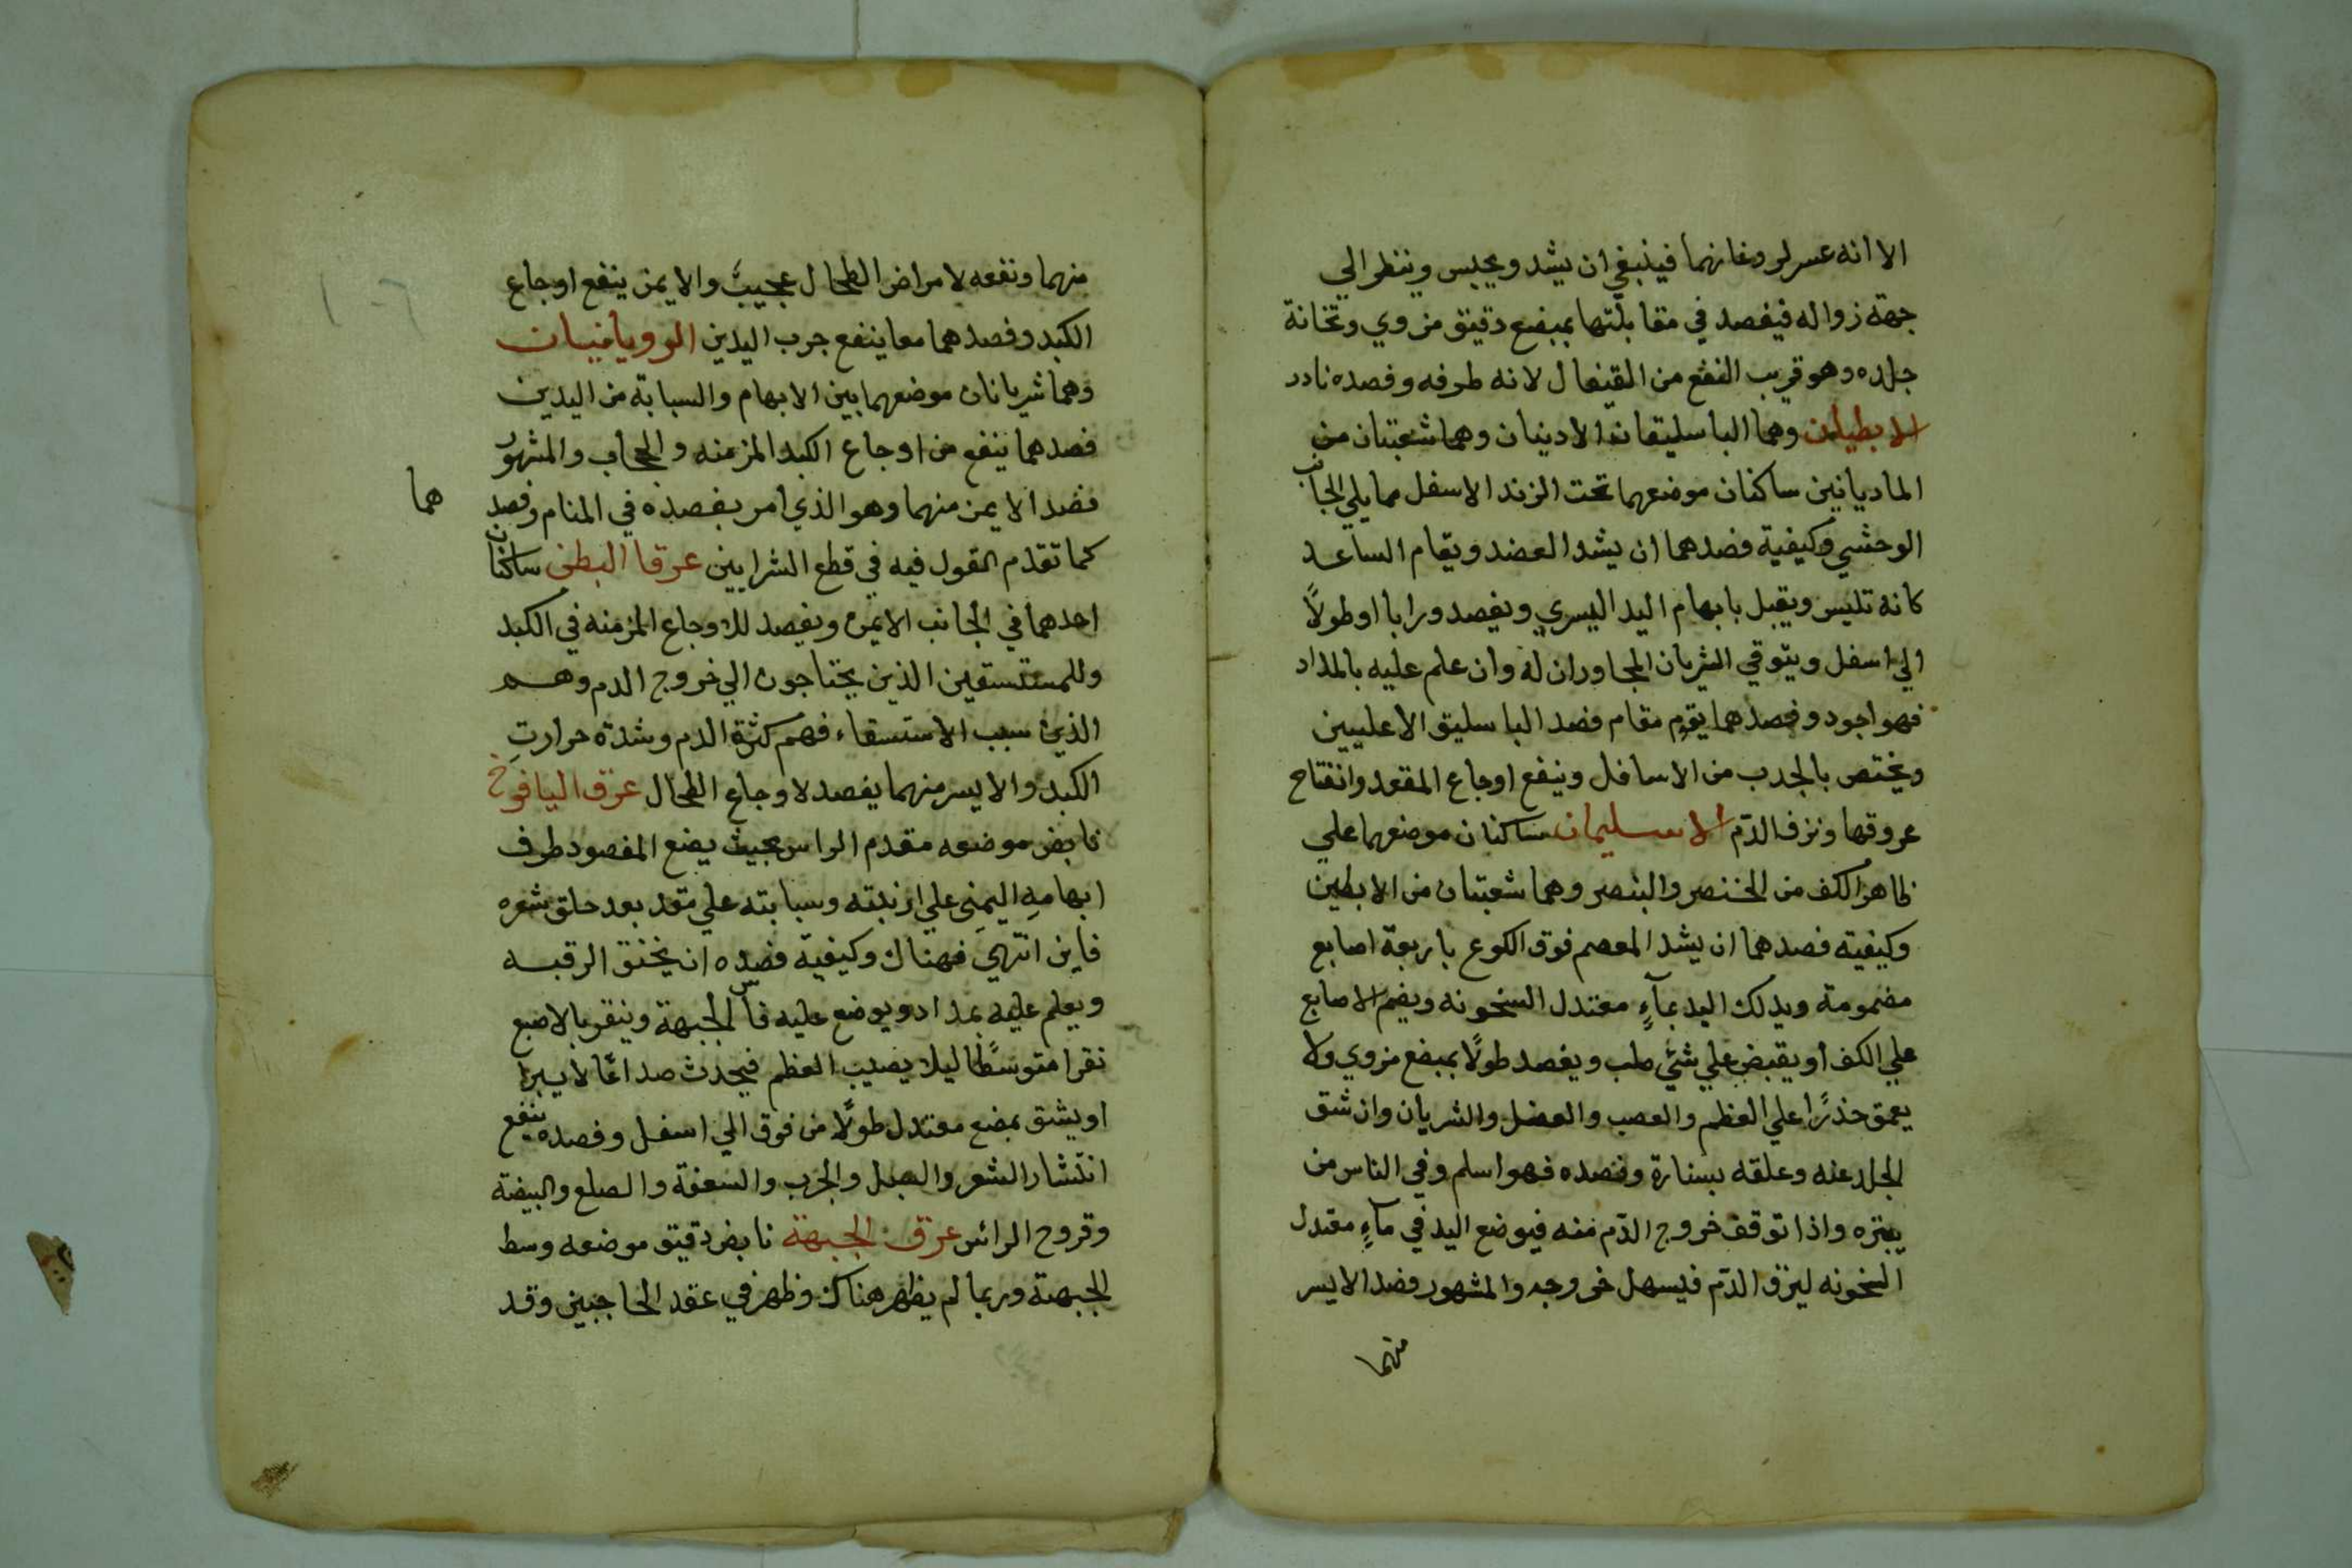 الا انه عسر لروغانهما فينبغي ان يشد ويحبس وينظر الي
جهة زواله فيفصد في مقابلتها بمبضع دقيق مزوي وثخانة
جلده وهو قريب النفع من القيفال لانه طرفه وفصده نادر
الابطيان وهما الباسليقان الادنيان وهما شعبتان من
الماديانين ساكنان موضعهما تحت الزند الاسفل مما يلي الجانب
الوحشي وكيفية فصدهما ان يشد العضد ويقام الساعد
كانه تليس ويقبل بابهام اليد اليسري ويفصد ورابا او طولًا
الي اسفل ويتوقي الشريان المجاوران له وان علم عليه بالمداد
فهو اجود وفصدهما يقوم مقام فصد الباسليق الاعليين
ويختص بالجدب من الاسافل وينفع اوجاع المقعد وانفتاح
عروقها ونزف الدّم الاسليمان ساكنان موضعهما علي
ظاهر الكف من الخنصر والبنصر وهما شعبتان من الابطين
وكيفيته فصدهما ان يشد المعصم فوق الكوع باربعة اصابع
مضمومة ويدلك اليد بمآءٍ معتدل السخونه ويضم الاصابع
علي الكف او يقبض علي شيٍ صلب ويفصد طولًا بمبضع مزوي ولا
يعمق حذرًا علي العظم والعصب والعضل والشريان وان شق
الجلد عنه وعلقه بسنارة وفصده فهو اسلم وفي الناس من
يبتره واذا توقف خروج الدّم منه فيوضع اليد في مآءٍ معتدل
السخونه ليرق الدّم فيسهل خروجه والمشهور فصد الايسر
منهما
منهما ونفعه لامراض الطحال عجيبٌ والايمن ينفع اوجاع
الكبد وفصدهما معا ينفع جرب اليدين الرويانيان
وهما شريانان موضعهما بين الابهام والسبابة من اليدين
فصدهما ينفع من اوجاع الكبد المزمنه والحجاب والمشهور
فصد الايمن منهما وهو الذي امر بفصده في المنام وفصد
هما
كما تقدم القول فيه في قطع الشرايين عرقا البطن ساكنان
احدهما في الجانب الايمن ويفصد للاوجاع المزمنه في الكبد
وللمستسقين الذين يحتاجون الي خروج الدم وهم
الذين سبب الاستسقاء فهم كثرة الدم وشدة حرارتِ
الكبد والايسر منهما يفصد لاوجاع الطحال عرق اليافوخ
نابض موضعه مقدم الراس بحيث يضع المفصود طرف
ابهامهِ اليمني علي ارنبته وسبابته علي مقد بعد حلق شعره
فاين انتهي فهناك وكيفية فصده ان يخنق الرقبه
ويعلم عليه بمداد ويوضع عليه فاس الجبهة وينقر بالاصبع
نقرا متوسطًا ليلا يصيب العظم فيحدث صداعًا لا يبرا
او يشق بمضع معتدل طولًا من فوق الي اسفل وفصده ينفع
انتشار الشعر والهبل والجرب والسعفة والصلع والبيضة
وقروح الرائس عرق الجبهة نابض دقيق موضعه وسط
الجبهة وربما لم يظهر هناك وظهر في عقد الحاجبين وقد